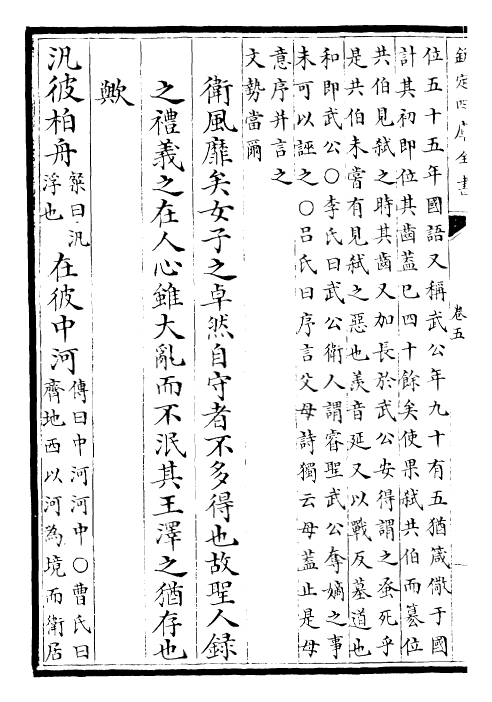 欽定四庫全書
卷五
位五十五年國語又稱武公年九十有五猶箴儆于國
計其初即位其齒蓋已四十餘矣使果弑共伯而簒位
共伯見弑之時其齒又加長於武公安得謂之蚤死乎
是共伯未嘗有見弑之惡也羨音延又以戰反墓道也
和即武公○李氏曰武公衛人謂睿聖武公奪嫡之事
未可以誣之○呂氏曰序言父母詩獨云母蓋止是母
意序并言之
文勢當爾
衛風靡矣女子之卓然自守者不多得也故聖人錄
之禮義之在人心雖大亂而不泯其王澤之猶存也
歟
汎彼柏舟箋曰汎
浮也在彼中河傳曰中河河中○曹氏曰
齊地西以河為境而衛居